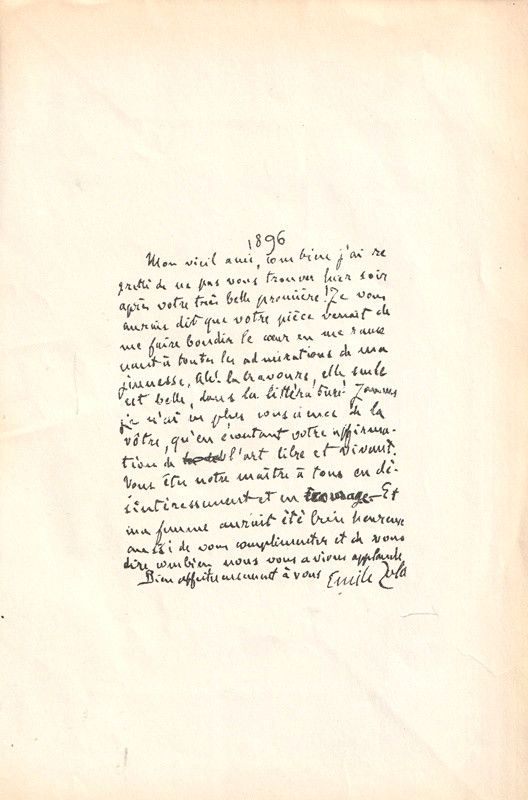 1896
Mon vieil ami, combien j'ai re
gretté de ne pas vous trouver hier soir
après votre très belle première! Je vous
aurais dit que votre pièce venait de
me faire bondir le cœur en me rame
nant à toutes les admirations de ma
jeunesse. Ah! la bravoure, elle seule
est belle, dans la littérature! Jamais
je n'ai eu plus conscience de la
vôtre, qu'en écoutant votre affirma-
tion de l'art libre et vivant.
Vous êtes notre maître à tous en dé-
sintéressement et en courage. Et
ma femme aurait été bien heureuse
aussi de vous complimenter et de vous
dire combien nous vous avions applaudi
Bien affectueusement à vous Emile Zola